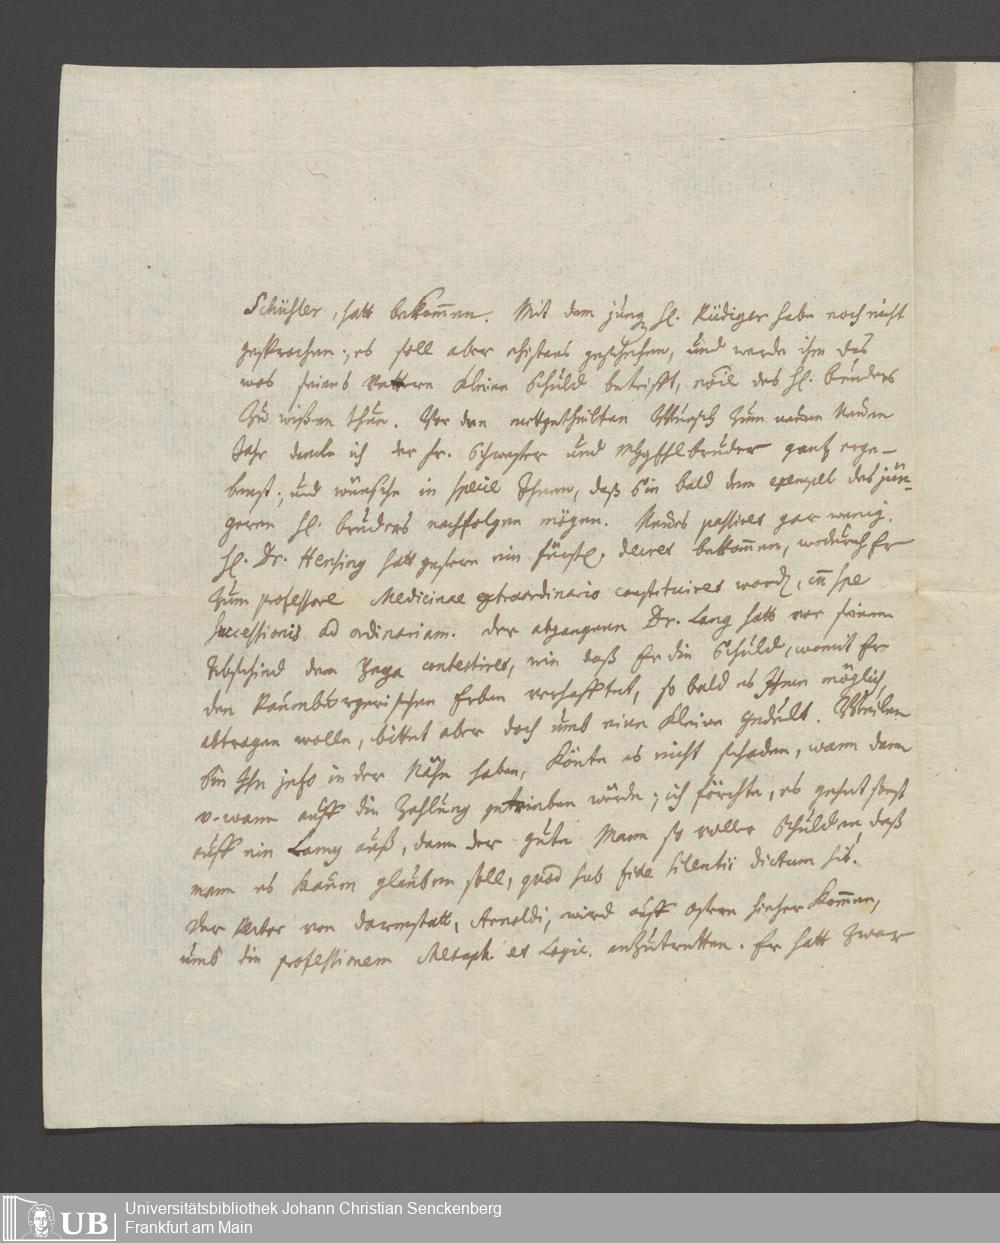 Schüßler, hatt bekom̅en. Mit dem jung H. Rüdiger habe noch nicht
gesprochen; es soll aber ehistens geschehen, und werde ihm das
was seines Vattern kleine Schuld betrifft, des H. bruders
zu wißen thun. Vor den mitgetheilten Wunsch zum neuen
Jahr dancke ich der Fr. Schwester und bruder gantz erge-
benst; und wünsche in specie Ihnen, daß Sie bald dem exempel des jün-
geren H. bruders nachfolgen mögen. Neues passiret gar wenig.
H. Dr. Hensing hatt gestern ein Fürstl. decret bekom̅en, wodurch Er
zum professore Medicinae extraordinario constituiret word, in spe
successionis ad ordinariam. Der abgangene Dr. Lang hatt vor seinem
Abschied dem contestiret, wie daß Er die Schuld, womit Er
den Raumburgerischen Erben verhafftet, so bald es Ihme möglich,
abtragen wolle, bittet aber doch umb eine kleine gedult. Weilen
Sie Ihn jetzo in der Nähe haben, könte es nicht schaden, wann dann
v. wann auff die Zahlung getrieben würde; ich förchte, es gehet sonst
auff ein Lamy auß, dann der gute Mann so voller Schulden, daß
mann es kaum glauben soll, quod sub fide silentii dictum sit.
Der von Darmstatt, Arnoldi, wird auff ostern hieher kom̅en,
umb die professionem Metaph. et Logic. anzutretten. Er hatt zwar
UB
Universitätsbibliothek Johann Christian Senckenberg
Frankfurt am Main